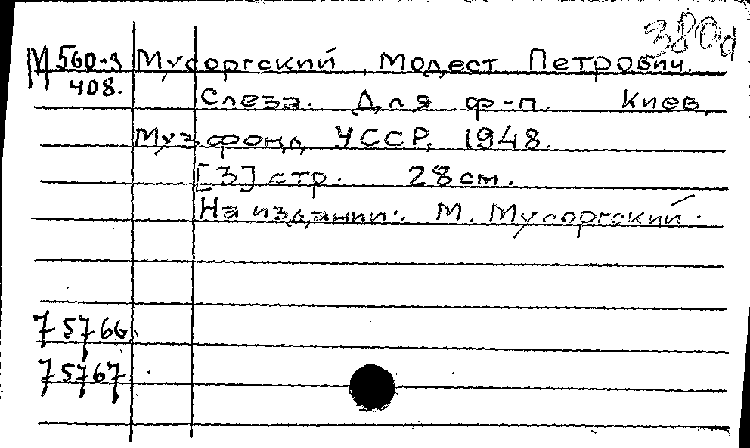 380д
М 560-3 Мусоргский, Модест Петрович.
408. Слеза. Для ф-п. Киев,
Музфонд УССР, 1948.
[3] стр. 28 см.
На издании: М. Мусоргский.
75766
75767